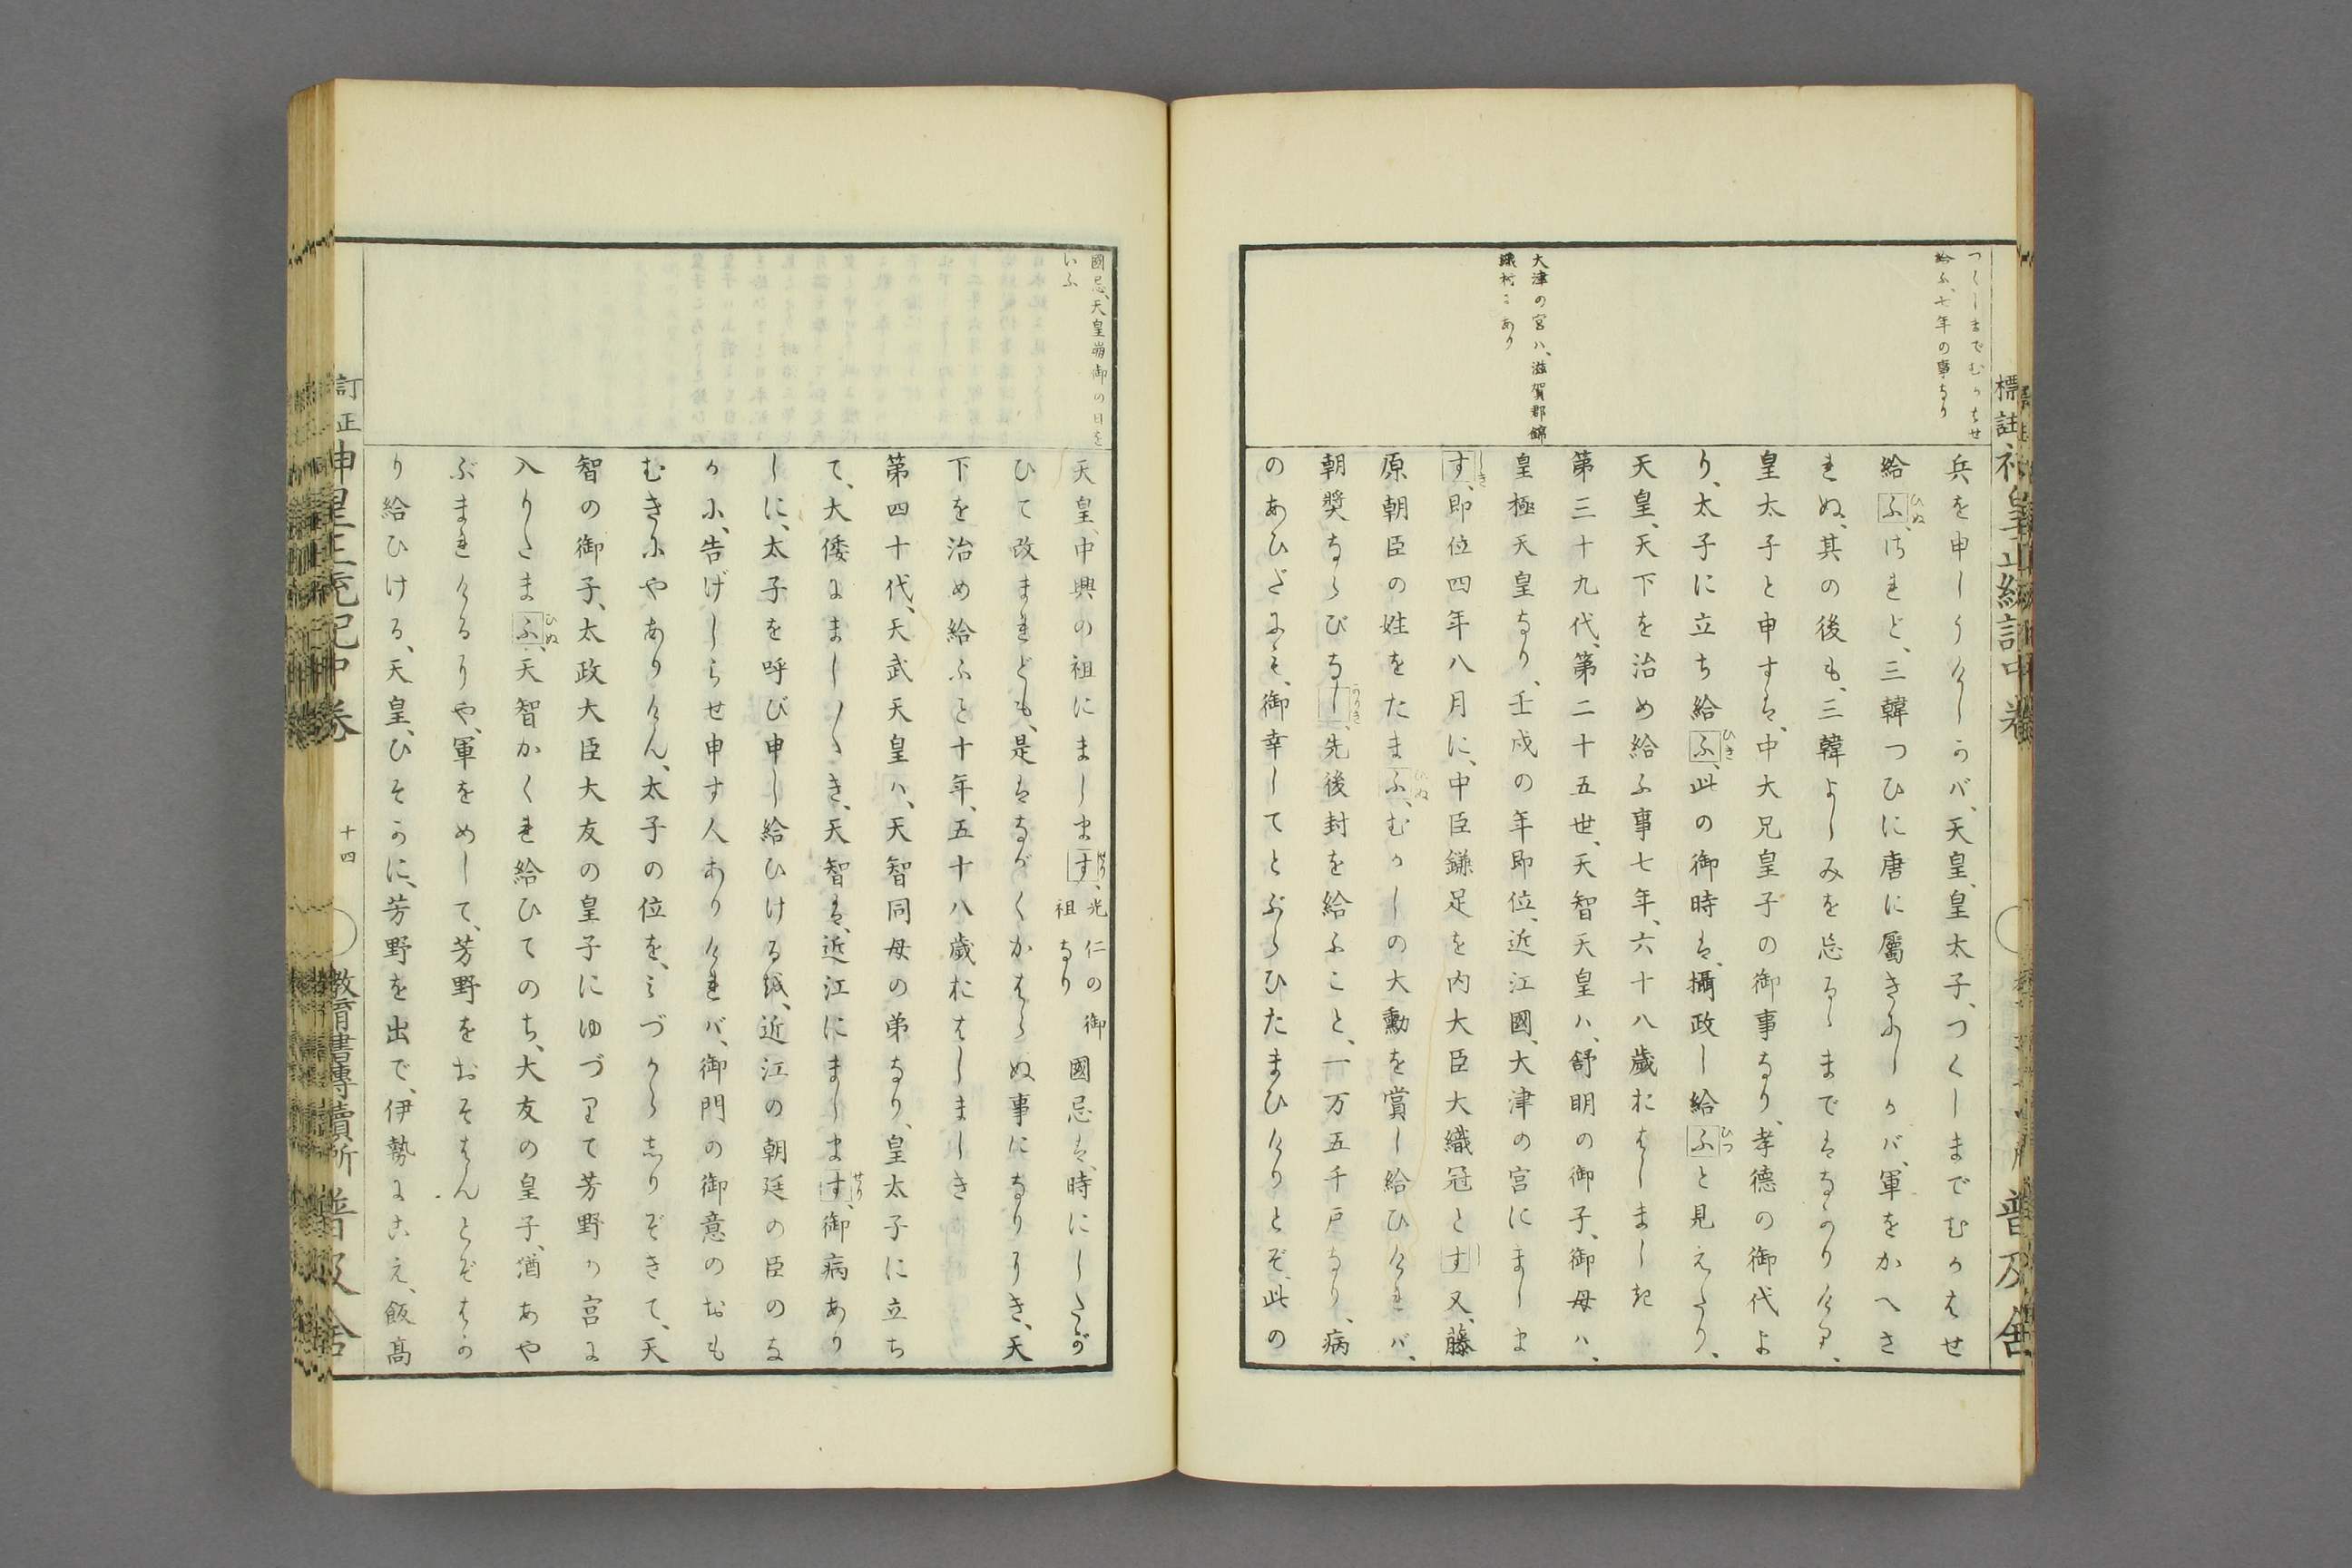 つくしまでむかはせ
給ふ、七年の事なり
大津の宮ハ、滋賀郡錦
織村ニあり
兵を申しうけしかバ、天皇、皇太子、つくしまでむかはせ
給ふ、ひぬ されど、三韓つひに唐に屬きにしかバ、軍をかへさ
れぬ、其の後も、三韓よしみを忘るゝまではなかりけり、
皇太子と申すは、中大兄皇子の御事なり、孝德の御代よ
り、太子に立ち給ふ、ひき 此の御時は、攝政し給ふひつと見えたり、
天皇、天下を治め給ふ事七年、六十八歲おはしましき
第三十九代、第二十五世、天智天皇ハ、舒明の御子、御母ハ、
皇極天皇なり、壬戌の年即位、近江國、大津の宮にましま
す、しき 即位四年八月に、中臣鎌足を内大臣大織冠とすし又、藤
原朝臣の姓をたまふ、ひぬ むかしの大勳を賞し給ひければ、
朝獎ならびなし、かりき 先後封を給ふこと、一万五千戸なり、病
のあひだにも、御幸してとぶらひたまひけりとぞ、此の
國忌、天皇崩御の日を
いふ
天皇、中興の祖にまします、せり 光仁の御祖なり 國忌は、時にしたが
ひて改まれども、是はながくかはらぬ事になりにき、天
下を治め給ふこと十年、五十八歲おはしましき
第四十代、天武天皇ハ、天智同母の弟なり、皇太子に立ち
て、大倭にましましき、天智は、近江にましますせり、御病あり
しに、太子を呼び申し給ひけるを、近江の朝廷の臣のな
かに、告げしらせ申す人ありければ、御門の御意のおも
むきにやありけん、太子の位を、みづからしりぞきて、天
智の御子、太政大臣大友の皇子にゆづりて芳野の宮に
入りたまふ、ひぬ 天智かくれ給ひてのち、大友の皇子、猶あや
ぶまれけるにや、軍をめして、芳野をおそはんとぞはか
り給ひける、天皇、ひそかに、芳野を出で、伊勢にこえ、飯高
訂正神皇正統記中卷 十四 教育書專賣所 普及舍